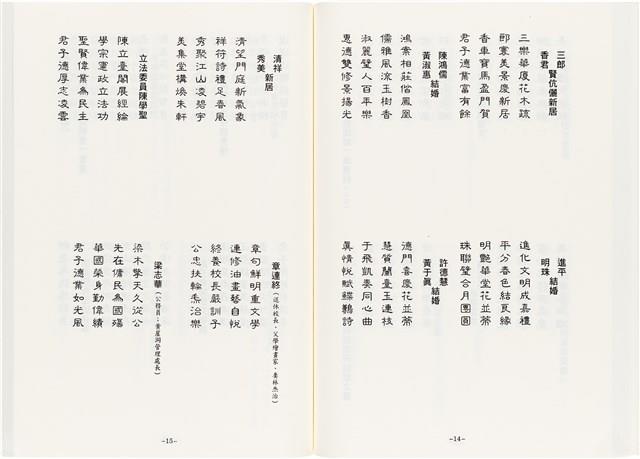 三郎
香君 賢伉儷新居
三樂華廈花木疏
郎寰美景慶新居
香車寶馬盈門賀
君子德業富有餘
陳鴻儒
黃淑惠 結婚
鴻案相莊偕鳳凰
儒雅風流玉樹香
淑麗璧人百平樂
惠德雙修景揚光
進平
明珠 結婚
進化文明成嘉禮
平分春色結良緣
明艷華堂花並蒂
珠聯璧合月團圓
許德慧
黃于真 結婚
德門喜慶花並蒂
慧質蘭臺玉連枝
于飛凱奏同心曲
真情悅賦鰈鶼詩
-14-
清祥
秀美 新居
清望門庭新氣象
祥符詩禮足春風
秀聚江山凌碧宇
美集堂構煥朱軒
立法委員陳學聖
陳立臺閣展經綸
學宗憲政立法功
聖賢偉業為民生
君子德厚志凌雲
章連終（退休校長、父學繪畫家、妻林杰治）
章句鮮明重文學
連修油畫藝自悅
終養校長嚴訓子
公忠扶輪秉治樂
梁志華（公務員；黃崖洞管理處長）
梁木擎天久從公
先在傭民為國殤
華國榮身勤偉績
君子德業如光風
-15-